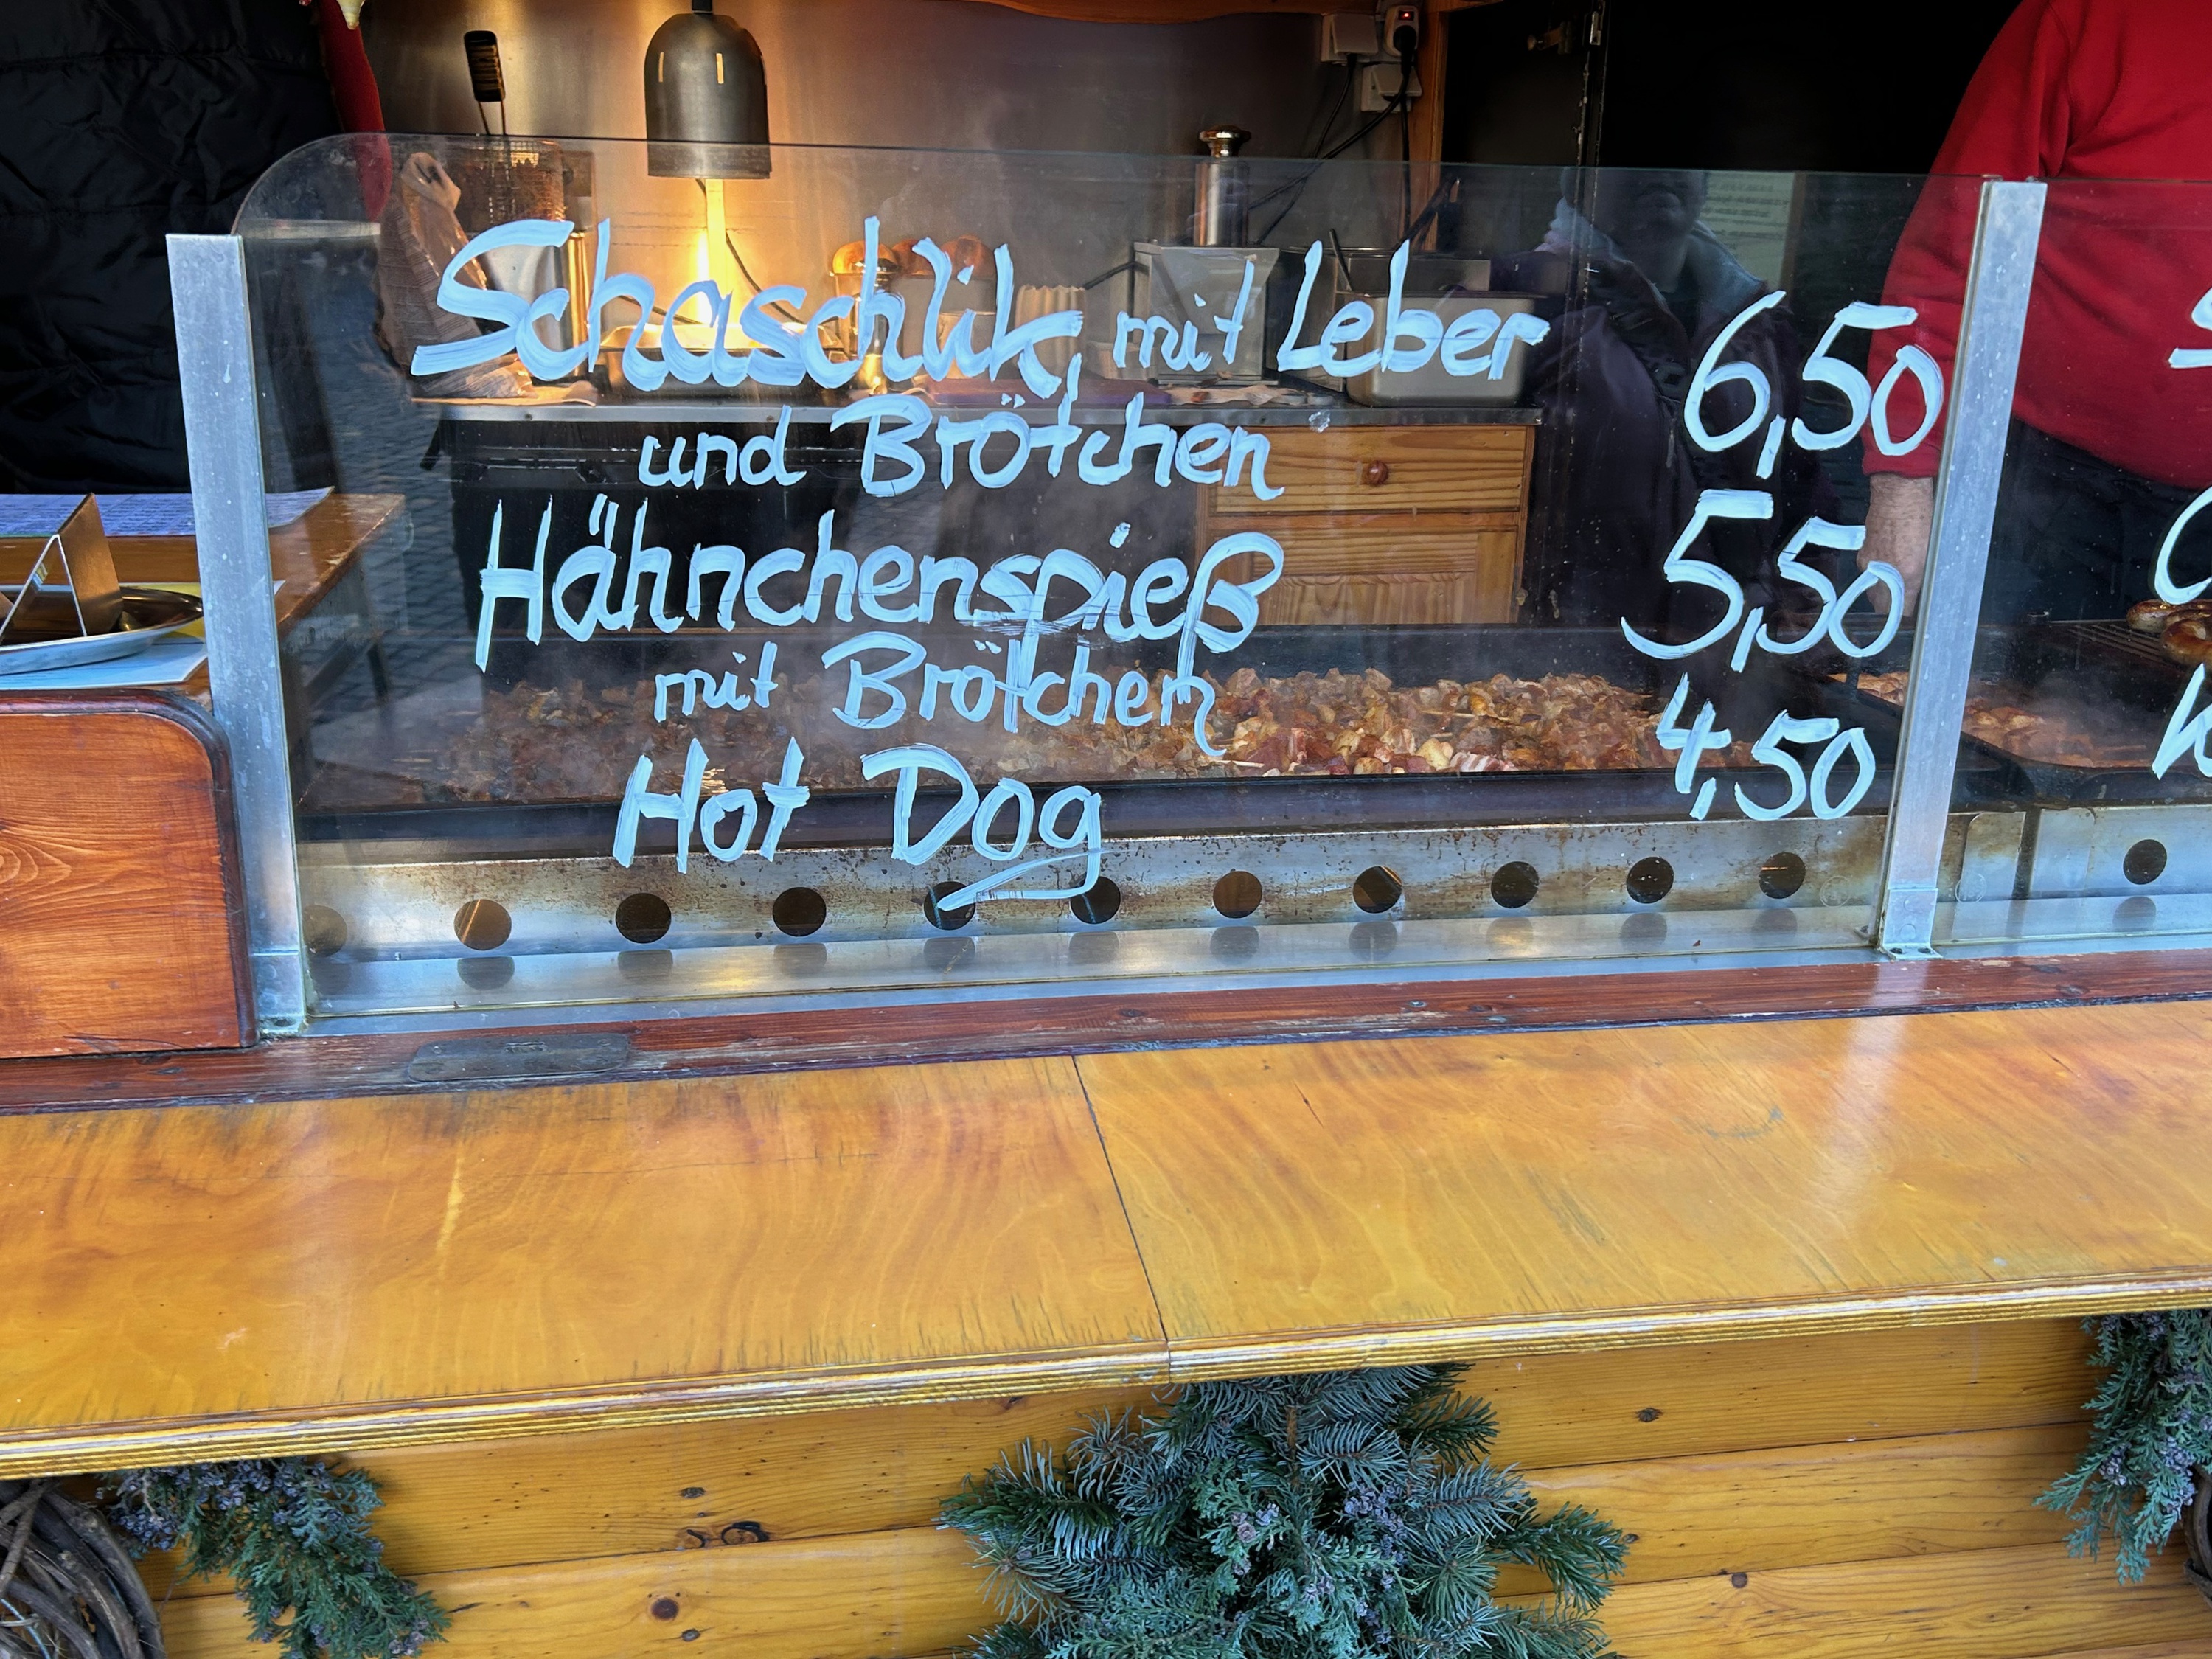 Schaschlik, mit Leber 6,50
und Brötchen
Hähnchenspieß 5,50
mit Brötchen
Hot Dog 4,50